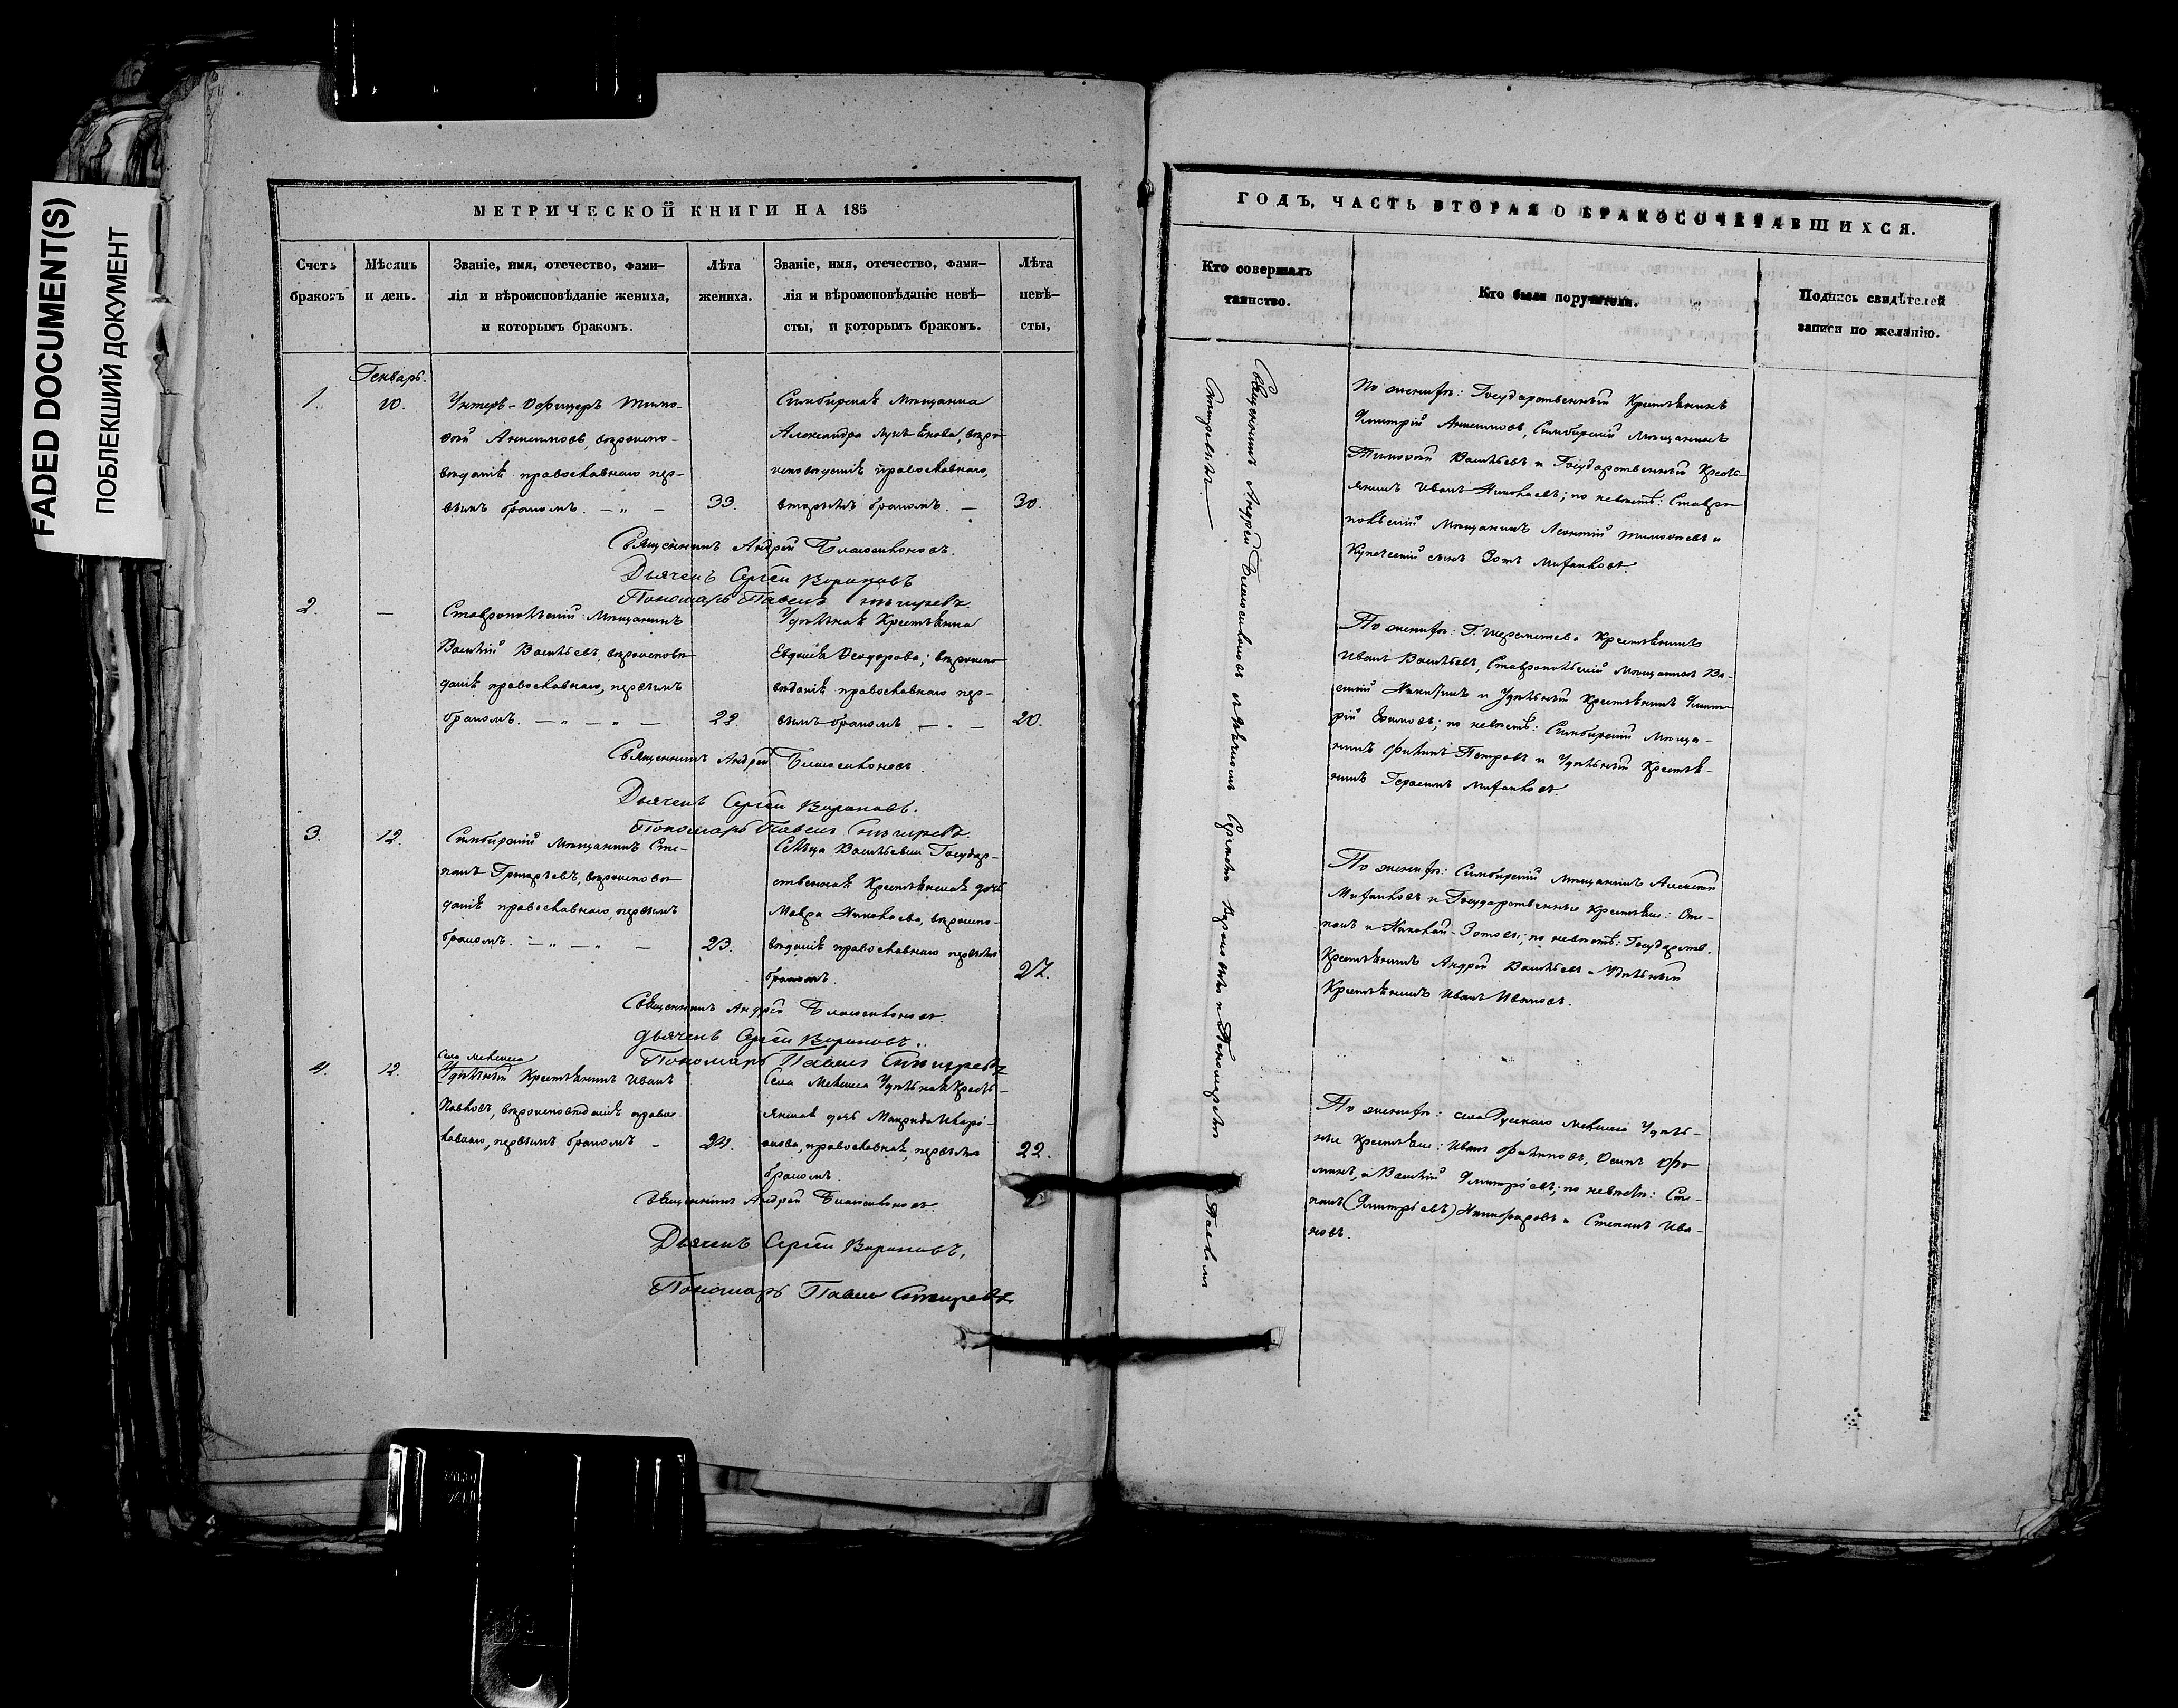 FADED DOCUMENT(S)
ПОБЛЕКШИЙ ДОКУМЕНТ
МЕТРИЧЕСКОЙ КНИГИ НА 185
Счетъ браковъ
Мѣсяцъ и день.
Званіе, имя, отечество, фами-
лія и вѣроисповѣданіе жениха,
и которымъ бракомъ.
Лѣта жениха.
Званіе, имя, отечество, фами-
лія и вѣроисповѣданіе невѣ-
сты, и которымъ бракомъ.
Лѣта невѣ-
сты,
Генварь.
1.
10.
Унтеръ-Офицеръ Тимо-
фей Анисимовъ, вѣроиспо-
вѣданія православнаго пер-
вымъ бракомъ.
33.
Симбирская Мѣщанка
Александра Лукьянова, вѣро
исповѣданія православнаго,
вторымъ бракомъ.
30.
Священникъ Андрей
Дьячекъ Сергей Вороновъ
Пономарь Павелъ
2.
—
Ставропольскій Мѣщанинъ
Василій Васильевъ, вѣроисповѣ
данія православнаго, первымъ
бракомъ.
22.
Удѣльная Крестьянка
Евдокія Ѳеодорова, вѣроиспо
вѣданія православнаго пер-
вымъ бракомъ
20.
Священникъ Андрей
Дьячекъ Сергей Вороновъ.
Пономарь Павелъ
3.
12.
Симбирскій Мѣщанинъ Сте-
панъ Григорьевъ, вѣроисповѣ
данія православнаго, первымъ
бракомъ.
23.
Сельца Васильевки Государ-
ственная Крестьянская дочь
Мавра Николаева, вѣроиспо-
вѣданія православнаго первымъ
бракомъ.
27.
Священникъ Андрей
Дьячекъ Сергей Вороновъ.
Пономарь Павелъ
4.
12.
Села
Удѣльный Крестьянинъ Иванъ
Павловъ, вѣроисповѣданія право
славнаго, первымъ бракомъ
24.
Села Удѣльная Кресть-
янская дочь
православная, первымъ
бракомъ.
22.
Священникъ Андрей
Дьячекъ Сергей Вороновъ,
Пономарь Павелъ
ГОДЪ, ЧАСТЬ ВТОРАЯ О БРАКОСОЧЕТАВШИХСЯ.
Кто совершалъ
таинство.
Кто были поручители.
Подпись свидѣтелей
записи по желанію.
Священникъ Андрей съ Дьячкомъ Сергѣемъ Вороновымъ и Пономаремъ Павломъ
По женихѣ: Государственный Крестьянинъ
Дмитрій Анисимовъ, Симбирскій Мѣщанинъ
Тимофей Васильевъ и Государственный Кресть
янинъ Иванъ Николаевъ; по невѣстѣ: Ставро
польскій Мѣщанинъ Леонтій Тимофеевъ и
Купеческій сынъ Зотъ Михайловъ.
По женихѣ: Г. Шереметева Крестьянинъ
Иванъ Васильевъ, Ставропольскій Мѣщанинъ Ва-
силій Никитинъ и Удѣльный Крестьянинъ Дмит
рій Ефимовъ; по невѣстѣ: Симбирскій Мѣща-
нинъ Филипъ Петровъ и Удѣльный Крестья-
нинъ Герасимъ Михайловъ.
По женихѣ: Симбирскій Мѣщанинъ Алексей
Михайловъ и Государственные Крестьяне: Сте-
панъ и Николай Зотовы; по невѣстѣ: Государств.
Крестьянинъ Андрей Васильевъ и Удѣльный
Крестьянинъ Иванъ Ивановъ.
По женихѣ: села Русскаго Удѣль-
ные Крестьяне: Иванъ Филиповъ, Осипъ
и Василій Дмитріевъ; по невѣстѣ: Сте-
панъ (Дмитріевъ) Никифоровъ и Степанъ Ива-
новъ.